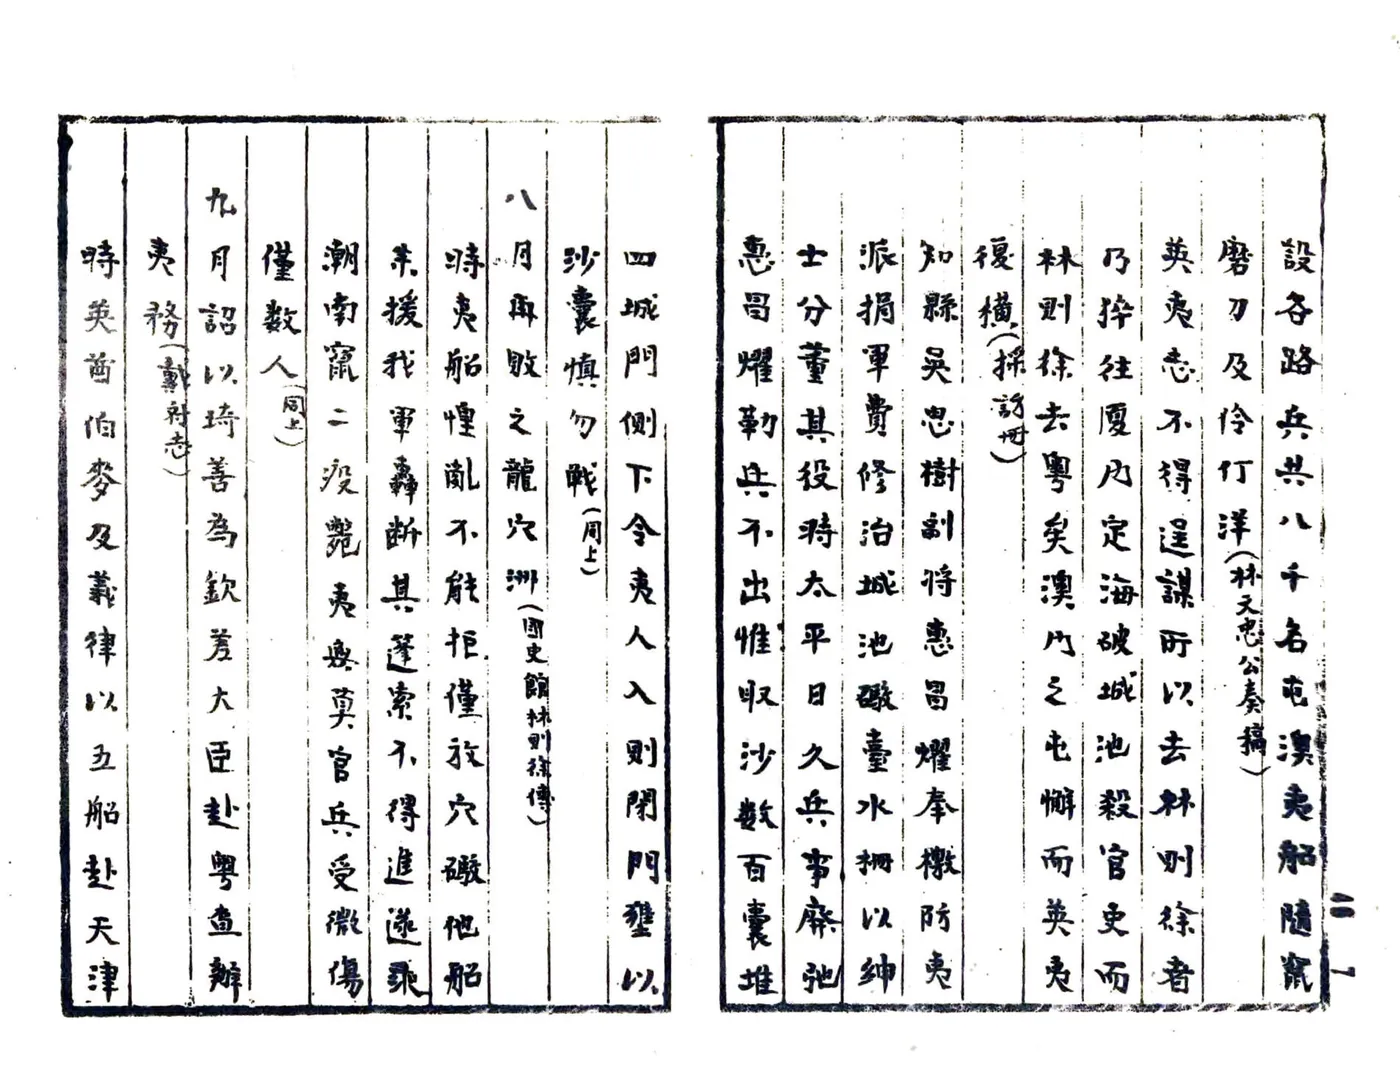 設各路兵共八千名屯澳夷船隨竄
磨刀及伶仃洋(林文忠公奏稿)
英夷志不得逞謀所以去林則徐者
乃猝往厦內定海破城池殺官吏而
林則徐去粵矣澳門之屯懈而英夷
復橫(採訪冊)
知縣吳思樹副将惠昌燿奉檄防夷
派捐軍費修治城池礮臺水柵以紳
士分董其役時太平日久兵事廢弛
惠昌燿勒兵不出惟取沙数百囊堆
四城門側下令夷人入則閉門壅以
沙囊慎勿戰(同上)
八月再敗之龍穴洲(國史館林則徐傳)
時夷船惶亂不能拒僅放穴礮他船
来援我軍轟断其篷索不得進遂乘
潮南竄二役斃夷無算官兵受微傷
僅数人(同上)
九月詔以琦善為欽差大臣赴粵查辦
夷務(戴府志)
時英酋伯麥及義律以五船赴天津